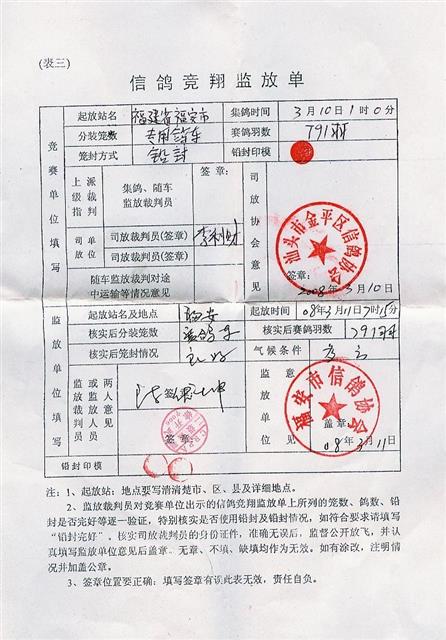 (表三)
信鸽竞翔监放单
竞赛单位填写
起放站名 福建省福安市 集鸽时间 3月10日1时0分
分装笼数 专用鸽车 赛鸽羽数 791羽
笼封方式 铅封 铅封印模
上级指派裁判 集鸽、随车监放裁判员 签章：
司放单位 司放裁判员(签章)
司放裁判员(签章)
随车监放裁判对途中运输等情况意见
司放协会意见 汕头市金平区信鸽协会
签章：
2008年3月10日
监放单位填写
起放站名及地点 福安 起放时间 08年3月11日7时15分
核实后分装笼数 核实后赛鸽羽数 791羽
核实后笼封情况 良好 气候条件 多云
监放裁判员或两人意见
签章
监放单位意见 福安市信鸽协会
盖章
08年3月11日
铅封印模
注：1、起放站：地点要写清清楚市、区、县及详细地点。
2、监放裁判员对竞赛单位出示的信鸽竞翔监放单上所列的笼数、鸽数、铅
封是否完好等逐一验证，特别核实是否使用铅封及铅封情况，如符合要求请填写
“铅封完好”。核实司放裁判员的身份证件，准确无误后，监督公开放飞，并认
真填写监放单位意见后盖章。无章、不填、缺填均作为无效。如有涂改，注明情
况并加盖公章。
3、签章位置要正确：填写签章有误此表无效，责任自负。